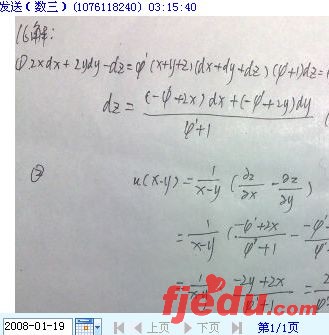 发送(数三)(1076118240) 03:15:40
16解:
① 2xdx+2ydy-dz=φ'(x+y+z)(dx+dy+dz) (φ'+1)dz=
dz= (-φ'+2x)dx+(-φ'+2y)dy
φ'+1
②
u(x-y)= 1/x-y (∂z/∂x - ∂z/∂y)
= 1/x-y (-φ'+2x/φ'+1 - -φ'
= 1/x-y -2y+2x/φ'+1 = 2
fjedu.com
2008-01-19 上页 下页 第1/1页